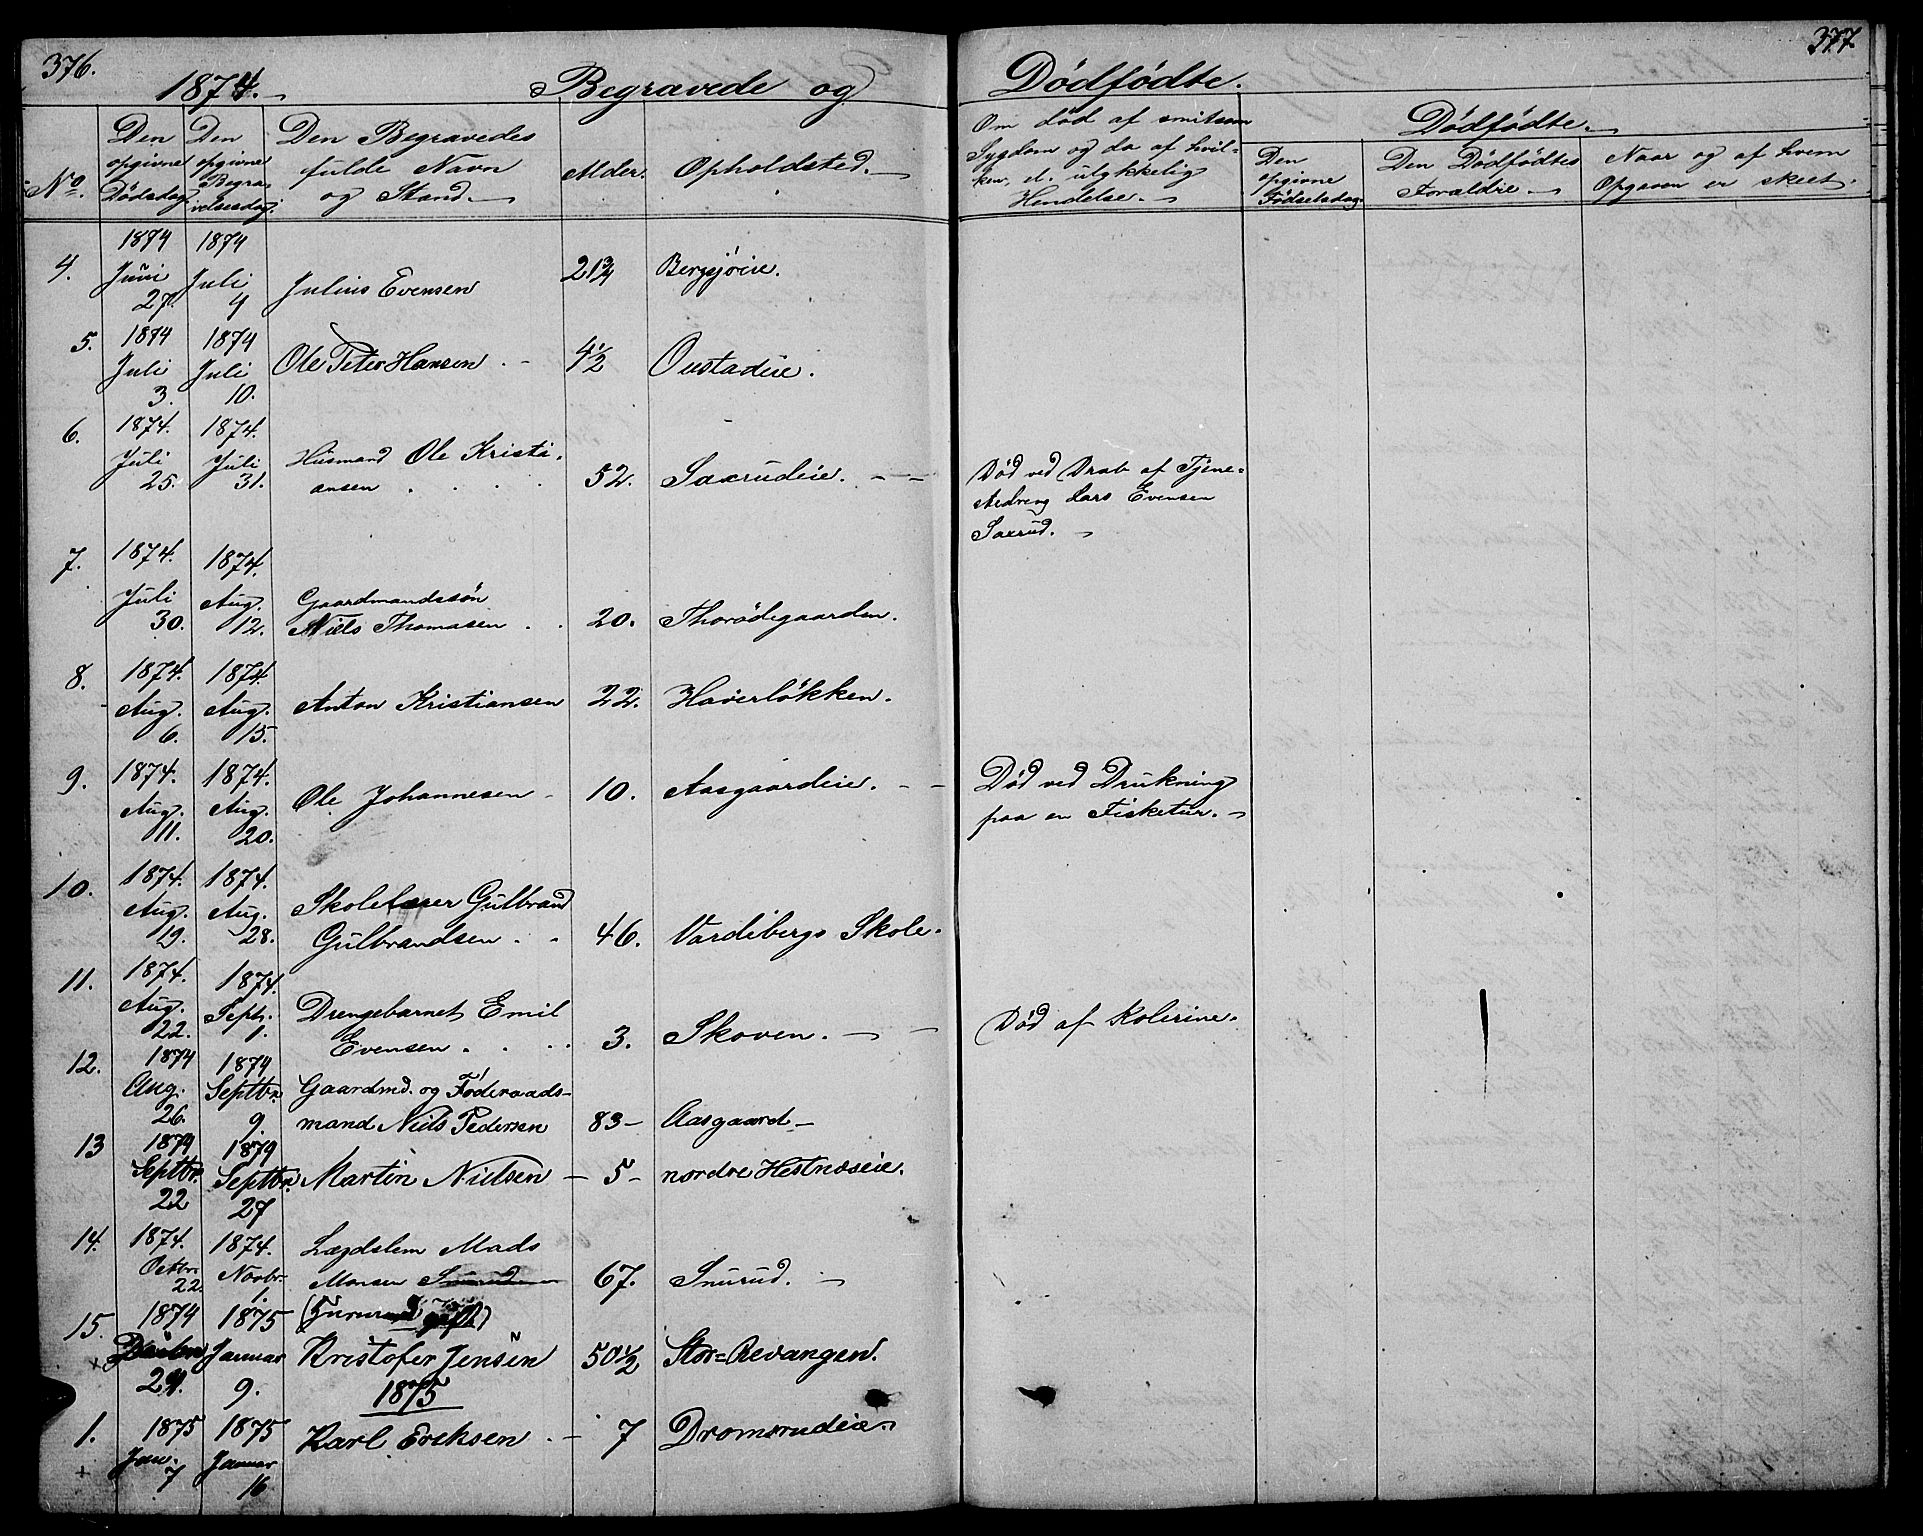 376.
1874.
Begravede og
Dödfödte.
377.
No.
Den opgivne Dödsdag.
Den opgivne Begravelsesdag.
Den Begravedes fulde Navn og Stand.
Alder.
Opholdsted.
Om död af smitsom Sygdom og da af hvilken, el. ulykkelig Hendelse.
Dödfödte.
Den opgivne Födselsdag.
Den Dödfödtes Forældre.
Naar og af hvem Opgaven er skeet.
4. 1874 Juni 27. 1874 Juli 4 Julius Evensen 21¾ Bergsjöeie.
5. 1874 Juli 3. 1874 Juli 10. Ole Peter Hansen 4½ Oustadeie.
6. 1874. Juli 25. 1874. Juli 31. Husmand Ole Kristi-
ansen 52. Saxrudeie. Död ved Drab af Tjene-
stedreng Lars Evensen
Saxrud.
7. 1874. Juli 30. 1874. Aug. 12. Gaardmandssön
Niels Thomasen 20. Thorödegaarden.
8. 1874. Aug. 6. 1874. Aug. 15. Anton Kristiansen 22. Haverlökken.
9. 1874. Aug. 11. 1874. Aug. 20. Ole Johannesen 10. Aasgaardeie. Död ved Drukning
paa en Fisketur.
10. 1874. Aug. 19. 1874. Aug. 28. Skolelærer Gulbrand
Gulbrandsen 46. Vardebergs Skole.
11. 1874. Aug. 22. 1874. Septr. 1. Drengebarnet Emil
Evensen 3. Skoven. Död af Kolerine.
12. 1874 Aug. 26. 1874 Septbr. 9. Gaardmd. og Föderaads-
mand Niels Pedersen 83 Aasgaard
13 1874 Septbr. 22 1874 Septbr. 27 Martin Nielsen 5 nordre Hestnæseie.
14. 1874. Octbr. 22. 1874. Novbr. 1. Lægdslem Mads
Monsen Snurud 67. Snurud.
15. 1874 Decbr 29. 1875 Januar 9. Kristofer Jensen 50½ Stor-Aevangen.
1875
1. 1875 Jan. 7 1875 Januar 16 Karl Eriksen 7 Dromsrudeie.